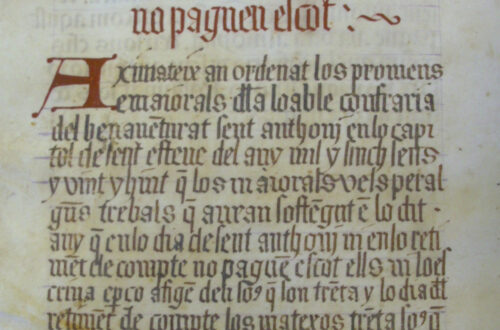 no paguen escot :~
Aximateix an ordenat los promens
e maiorals dla loable confraria
del benauēturat sent anthonj en lo capi
tol de sent esteue del any mil y sinch sens
y vint y huit q̄ los maiorals vels per al
gūs trebals q̄ auran sostēgut ē lo dit
any q̄ en lo dia de sent anthonj m en lo reti
mēt de compte no paguē escot ells ni loes
criua
q̄ son trēta y lo dia dl
retimēt de compte los matexos trēta so⁹ q̄